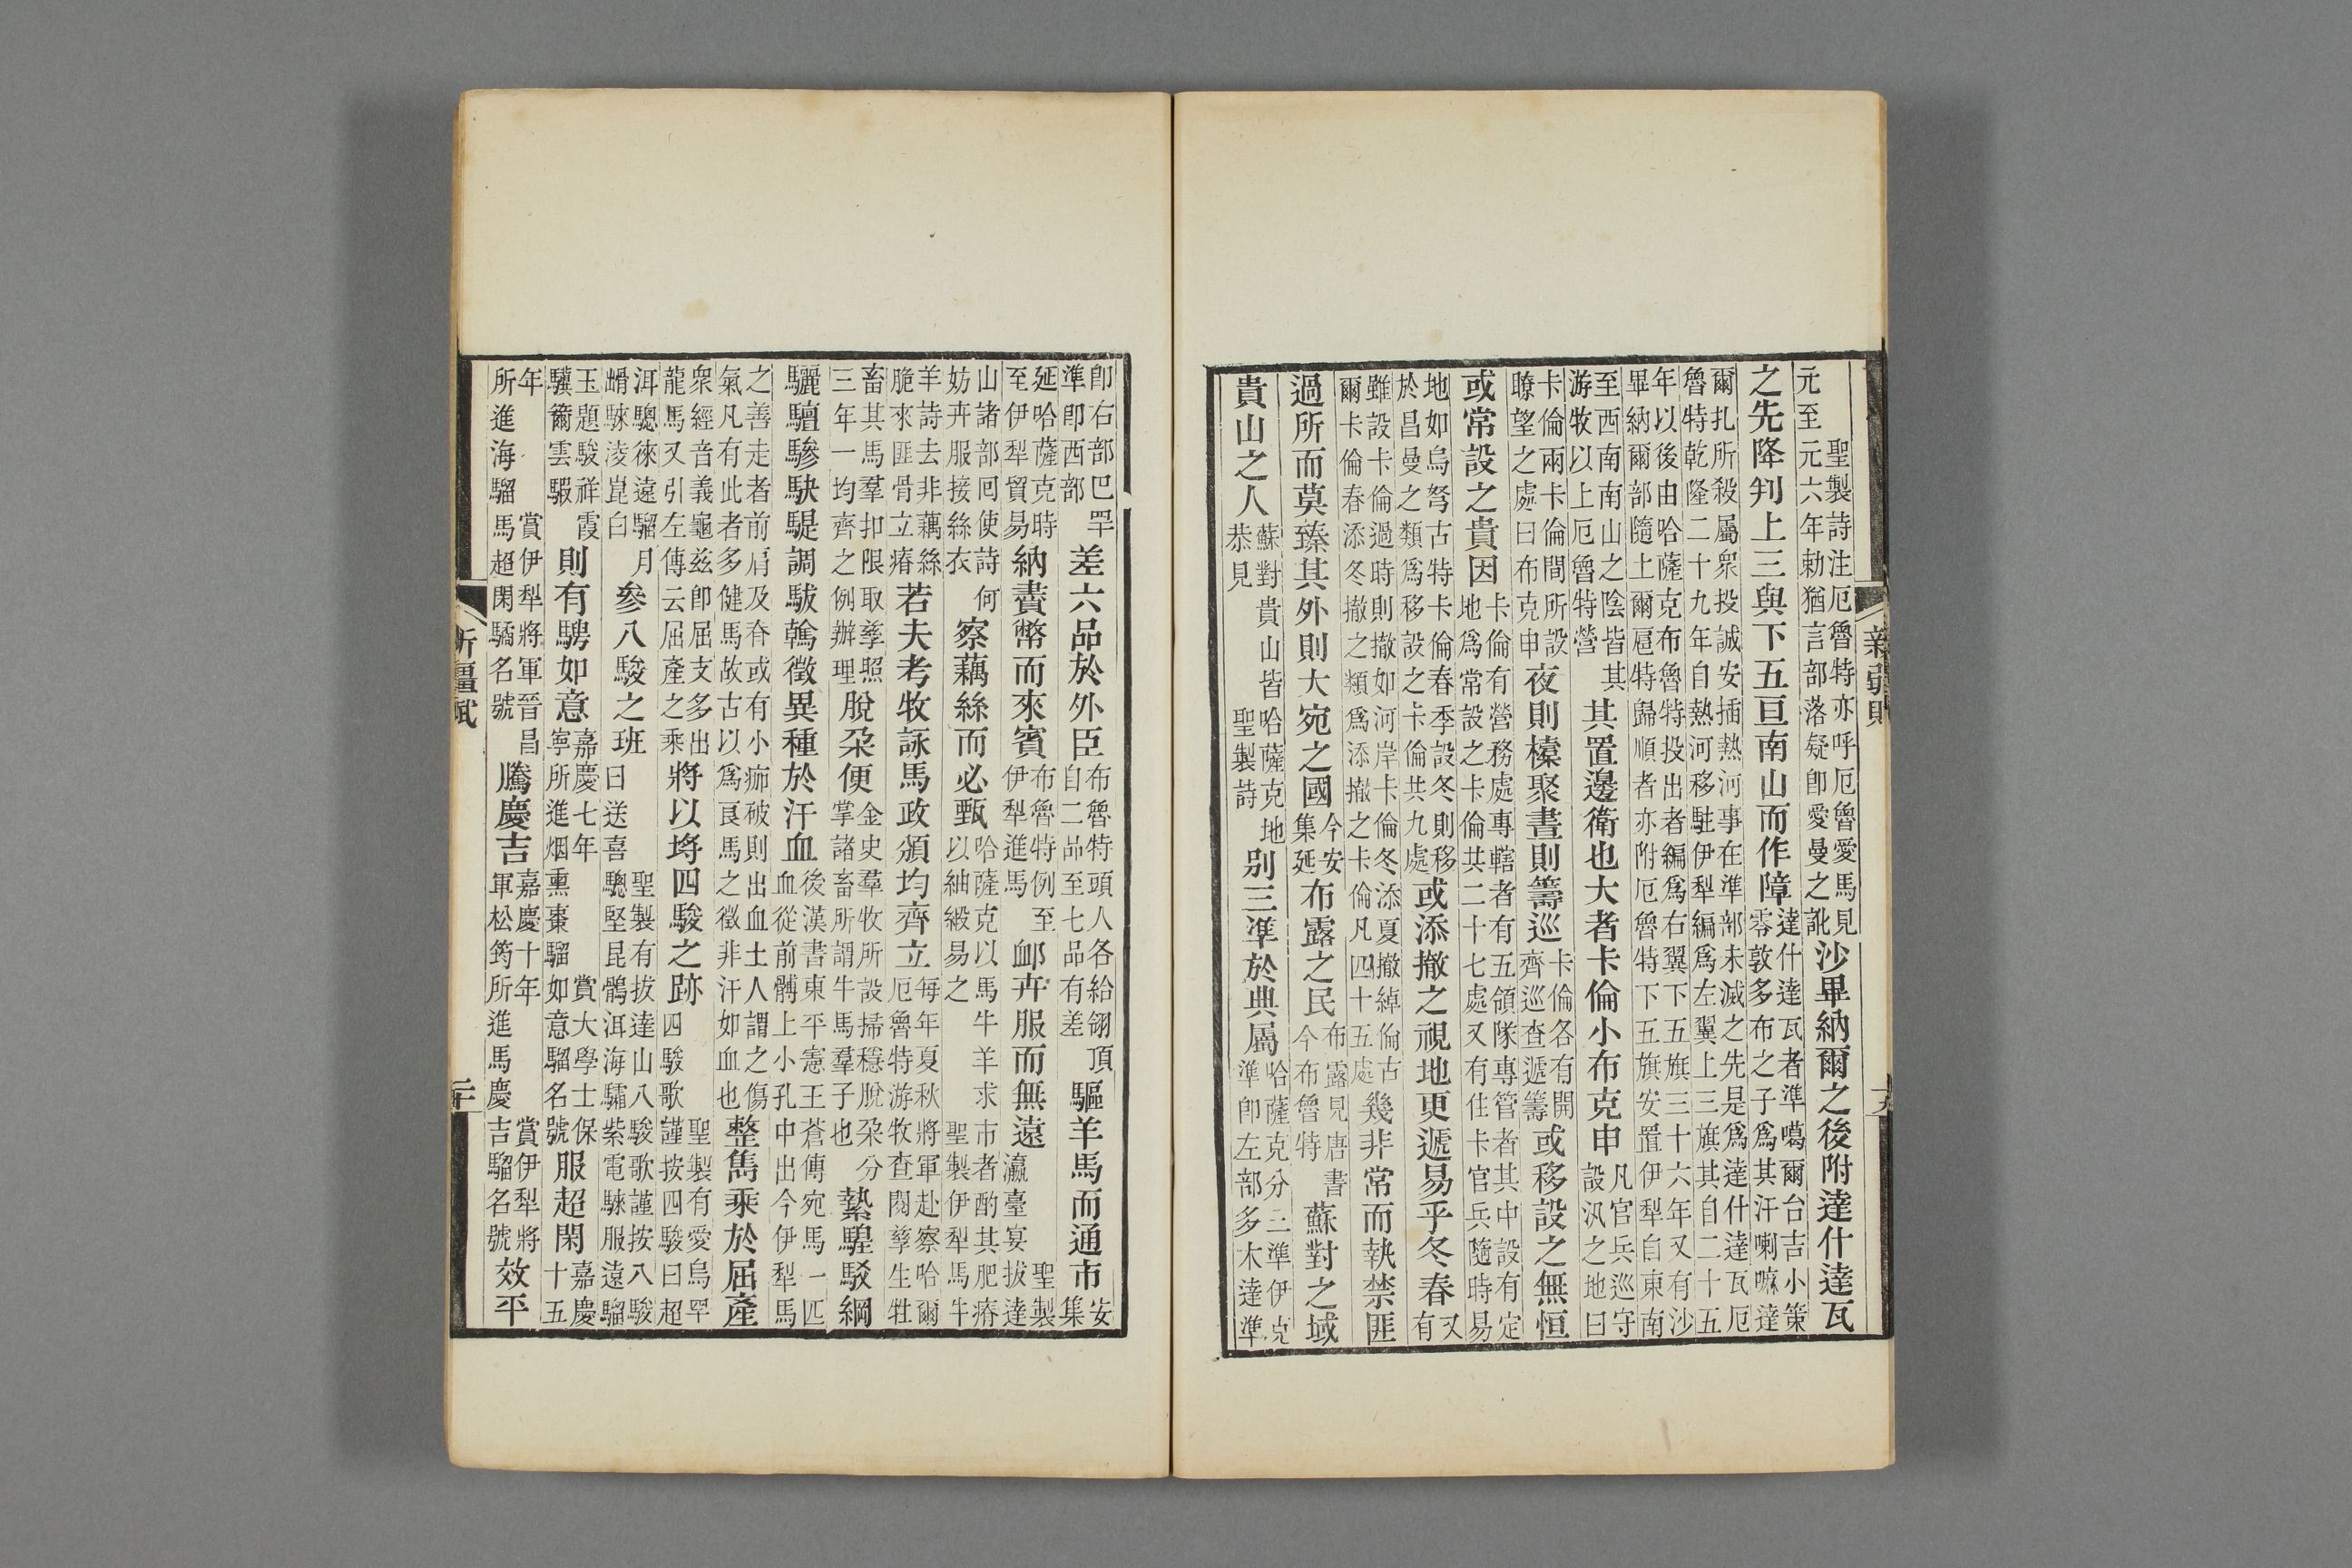 新疆賦
聖製詩注厄魯特亦呼厄魯愛馬見元至元六年勅猶言部落疑卽愛曼之訛沙畢納爾之後附達什達瓦
之先降判上三與下五亘南山而作障達什達瓦者準噶爾台吉小策零敦多布之子爲其汗喇嘛達
爾扎所殺屬衆投誠安插熱河事在準部未滅之先是爲達什達瓦厄魯特乾隆二十九年自熱河移駐伊犁編爲左翼上三旗其自二十五
年以後由哈薩克布魯特投出者編爲右翼下五旗三十六年又有沙畢納爾部隨土爾扈特歸順者亦附厄魯特下五旗安置伊犁自東南
至西南南山之陰皆其游牧以上厄魯特營其置邊衛也大者卡倫小布克申凡官兵巡守設汛之地曰
卡倫兩卡倫間所設瞭望之處曰布克申夜則榛聚晝則籌巡卡倫各有開齊巡查遞籌或移設之無恒
或常設之貴因卡倫有營務處專轄者有五領隊專管者其中設有定地爲常設之卡倫共二十七處又有住卡官兵隨時易
地如烏弩古特卡倫春季設冬則移於昌曼之類爲移設之卡倫共九處或添撤之視地更遞易乎冬春又有
雖設卡倫過時則撤如河岸卡倫冬添夏撤綽倫古爾卡倫春添冬撤之類爲添撤之卡倫凡四十五處幾非常而執禁匪
過所而莫臻其外則大宛之國今安集延布露之民布露見唐書今布魯特蘇對之域
貴山之人蘇對貴山皆哈薩克地恭見聖製詩别三準於典屬哈薩克分三準伊克準卽左部多木達準
卽右部巴罕準卽西部差六品於外臣布魯特頭人各給翎頂自二品至七品有差驅羊馬而通市安集
延哈薩克時至伊犁貿易納賮幣而來賓布魯特例至伊犁進馬卹卉服而無遠聖製瀛臺宴拔達
山諸部囘使詩何妨卉服接絲衣察藕絲而必甄哈薩克以馬牛羊求市者酌其肥瘠以紬緞易之聖製伊犁馬牛
羊詩去非藕絲脆來匪骨立瘠若夫考牧詠馬政頒均齊立每年夏秋將軍赴察哈爾厄魯特游牧查閱孳生牡
畜其馬羣扣限取孳照三年一均齊之例辦理脫朶便金史羣牧所設掃穩脫朶分掌諸畜所謂牛馬羣子也縶騜駁綱
驪驙驂駃騠調駊鶾徵異種於汗血後漢書東平憲王蒼傳宛馬一匹血從前髆上小孔中出今伊犁馬
之善走者前肩及脊或有小痂破則出血土人謂之傷氣凡有此者多健馬故古以爲良馬之徵非汗如血也整雋乘於屈產
衆經音義龜茲卽屈支多出龍馬又引左傳云屈產之乘將以埒四駿之跡聖製有愛烏罕四駿歌謹按四駿曰超
洱驄徠遠騮月騋淩崑白參八駿之班聖製有拔達山八駿歌謹按八駿曰送喜驄堅昆鶻洱海驦紫電騋服遠騮
玉題駿祥霞驥籋雲騢則有騁如意嘉慶七年賞大學士保寧所進烟熏棗騮如意騮名號服超閑嘉慶十五
年賞伊犁將軍晉昌所進海騮馬超閑驈名號騰慶吉嘉慶十年賞伊犁將軍松筠所進馬慶吉騮名號效平
新疆賦